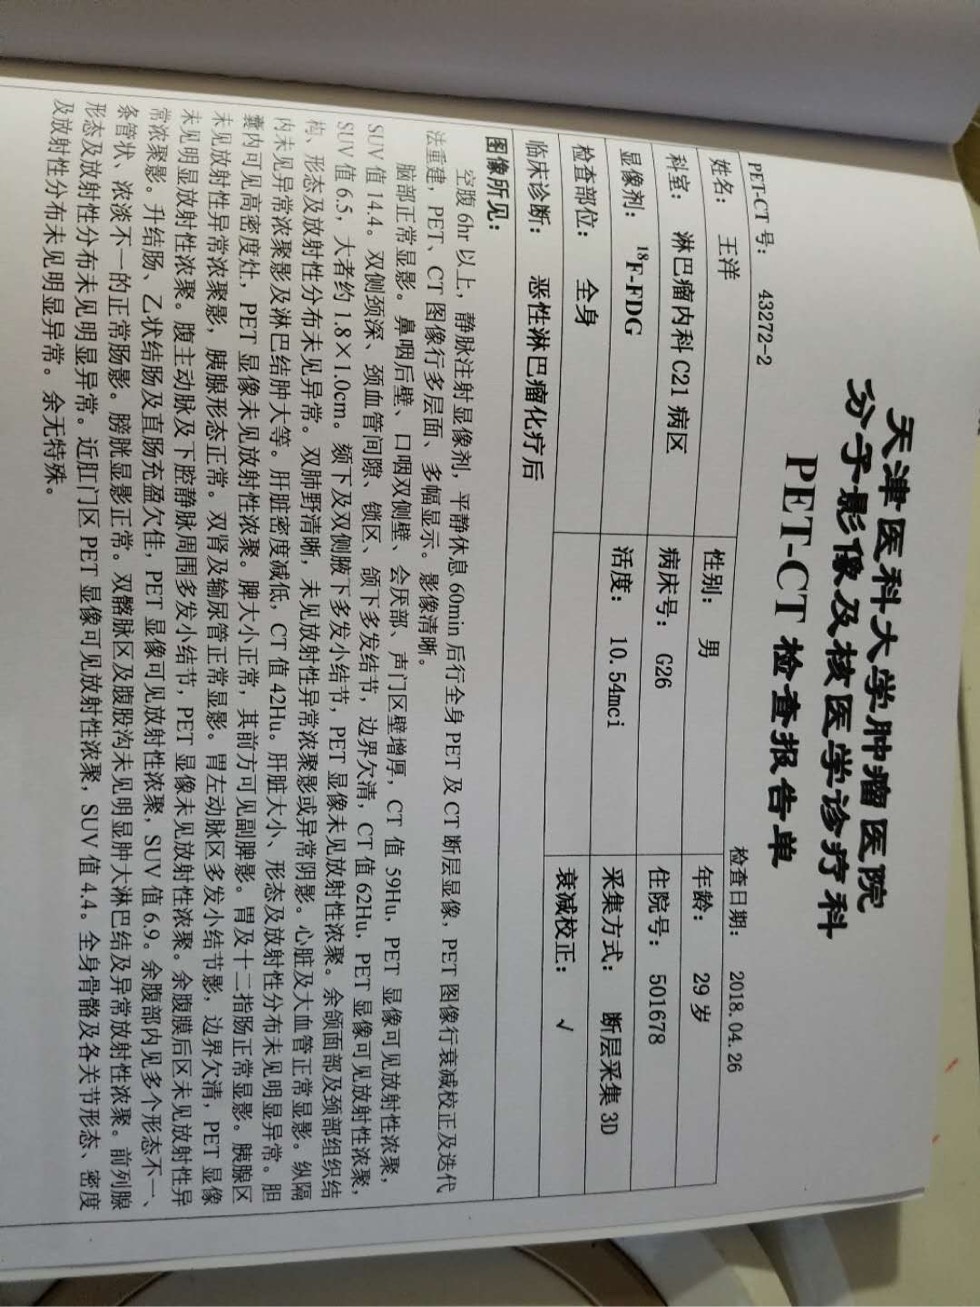 天津医科大学肿瘤医院
分子影像及核医学诊疗科
PET-CT 检查报告单
PET-CT 号： 43272-2 检查日期： 2018.04.26
姓名： 王洋 性别： 男 年龄： 29 岁
科室： 淋巴瘤内科 C21 病区 病床号： G26 住院号： 501678
显像剂： ¹⁸F-FDG 活度： 10.54mci 采集方式： 断层采集 3D
检查部位： 全身 衰减校正： √
临床诊断： 恶性淋巴瘤化疗后
图像所见：
空腹 6hr 以上，静脉注射显像剂，平静休息 60min 后行全身 PET 及 CT 断层显像，PET 图像行衰减校正及迭代
法重建，PET、CT 图像行多层面、多幅显示。影像清晰。
脑部正常显影。鼻咽后壁、口咽双侧壁、会厌部、声门区壁增厚，CT 值 59Hu，PET 显像可见放射性浓聚，
SUV 值 14.4。双侧颈深、颈血管间隙、锁区、颌下多发结节，边界欠清，CT 值 62Hu，PET 显像可见放射性浓聚，
SUV 值 6.5，大者约 1.8×1.0cm。颏下及双侧腋下多发小结节，PET 显像未见放射性浓聚。余颌面部及颈部组织结
构、形态及放射性分布未见异常。双肺野清晰，未见放射性异常浓聚影或异常阴影。心脏及大血管正常显影。纵隔
内未见异常浓聚影及淋巴结肿大等。肝脏密度减低，CT 值 42Hu。肝脏大小、形态及放射性分布未见明显异常。胆
囊内可见高密度灶，PET 显像未见放射性浓聚。脾大小正常，其前方可见副脾影。胃及十二指肠正常显影。胰腺区
未见放射性异常浓聚影，胰腺形态正常。双肾及输尿管正常显影。胃左动脉区多发小结节影，边界欠清，PET 显像
未见明显放射性浓聚。腹主动脉及下腔静脉周围多发小结节，PET 显像未见放射性浓聚。余腹膜后区未见放射性异
常浓聚影。升结肠、乙状结肠及直肠充盈欠佳，PET 显像可见放射性浓聚，SUV 值 6.9。余腹部内见多个形态不一、
条管状、浓淡不一的正常肠影。膀胱显影正常。双髂脉区及腹股沟未见明显肿大淋巴结及异常放射性浓聚。前列腺
形态及放射性分布未见明显异常。近肛门区 PET 显像可见放射性浓聚，SUV 值 4.4。全身骨骼及各关节形态、密度
及放射性分布未见明显异常。余无特殊。